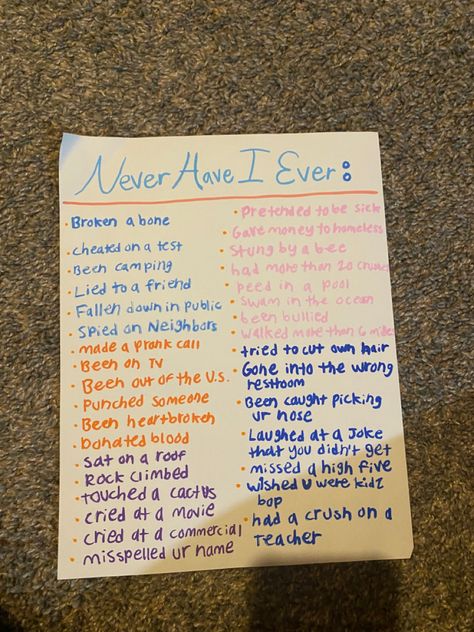 Never Have I Ever:
• Broken a bone
• cheated on a test
• Been camping
• Lied to a friend
• Fallen down in public
• Spied on Neighbors
• made a prank call
• Been on TV
• Been out of the U.S.
• Punched someone
• Been heartbroken
• Donated blood
• Sat on a roof
• Rock climbed
• touched a cactus
• cried at a movie
• cried at a commercial
• misspelled ur name
• Pretended to be sick
• Gave money to homeless
• Stung by a bee
• had more than 20 crushes
• peed in a pool
• swam in the ocean
• been bullied
• walked more than 6 miles
• tried to cut own hair
• Gone into the wrong
restroom
• Been caught picking
ur nose
• Laughed at a Joke
that you didn't get
• missed a high five
• wished u were kidz
bop
• had a crush on a
teacher